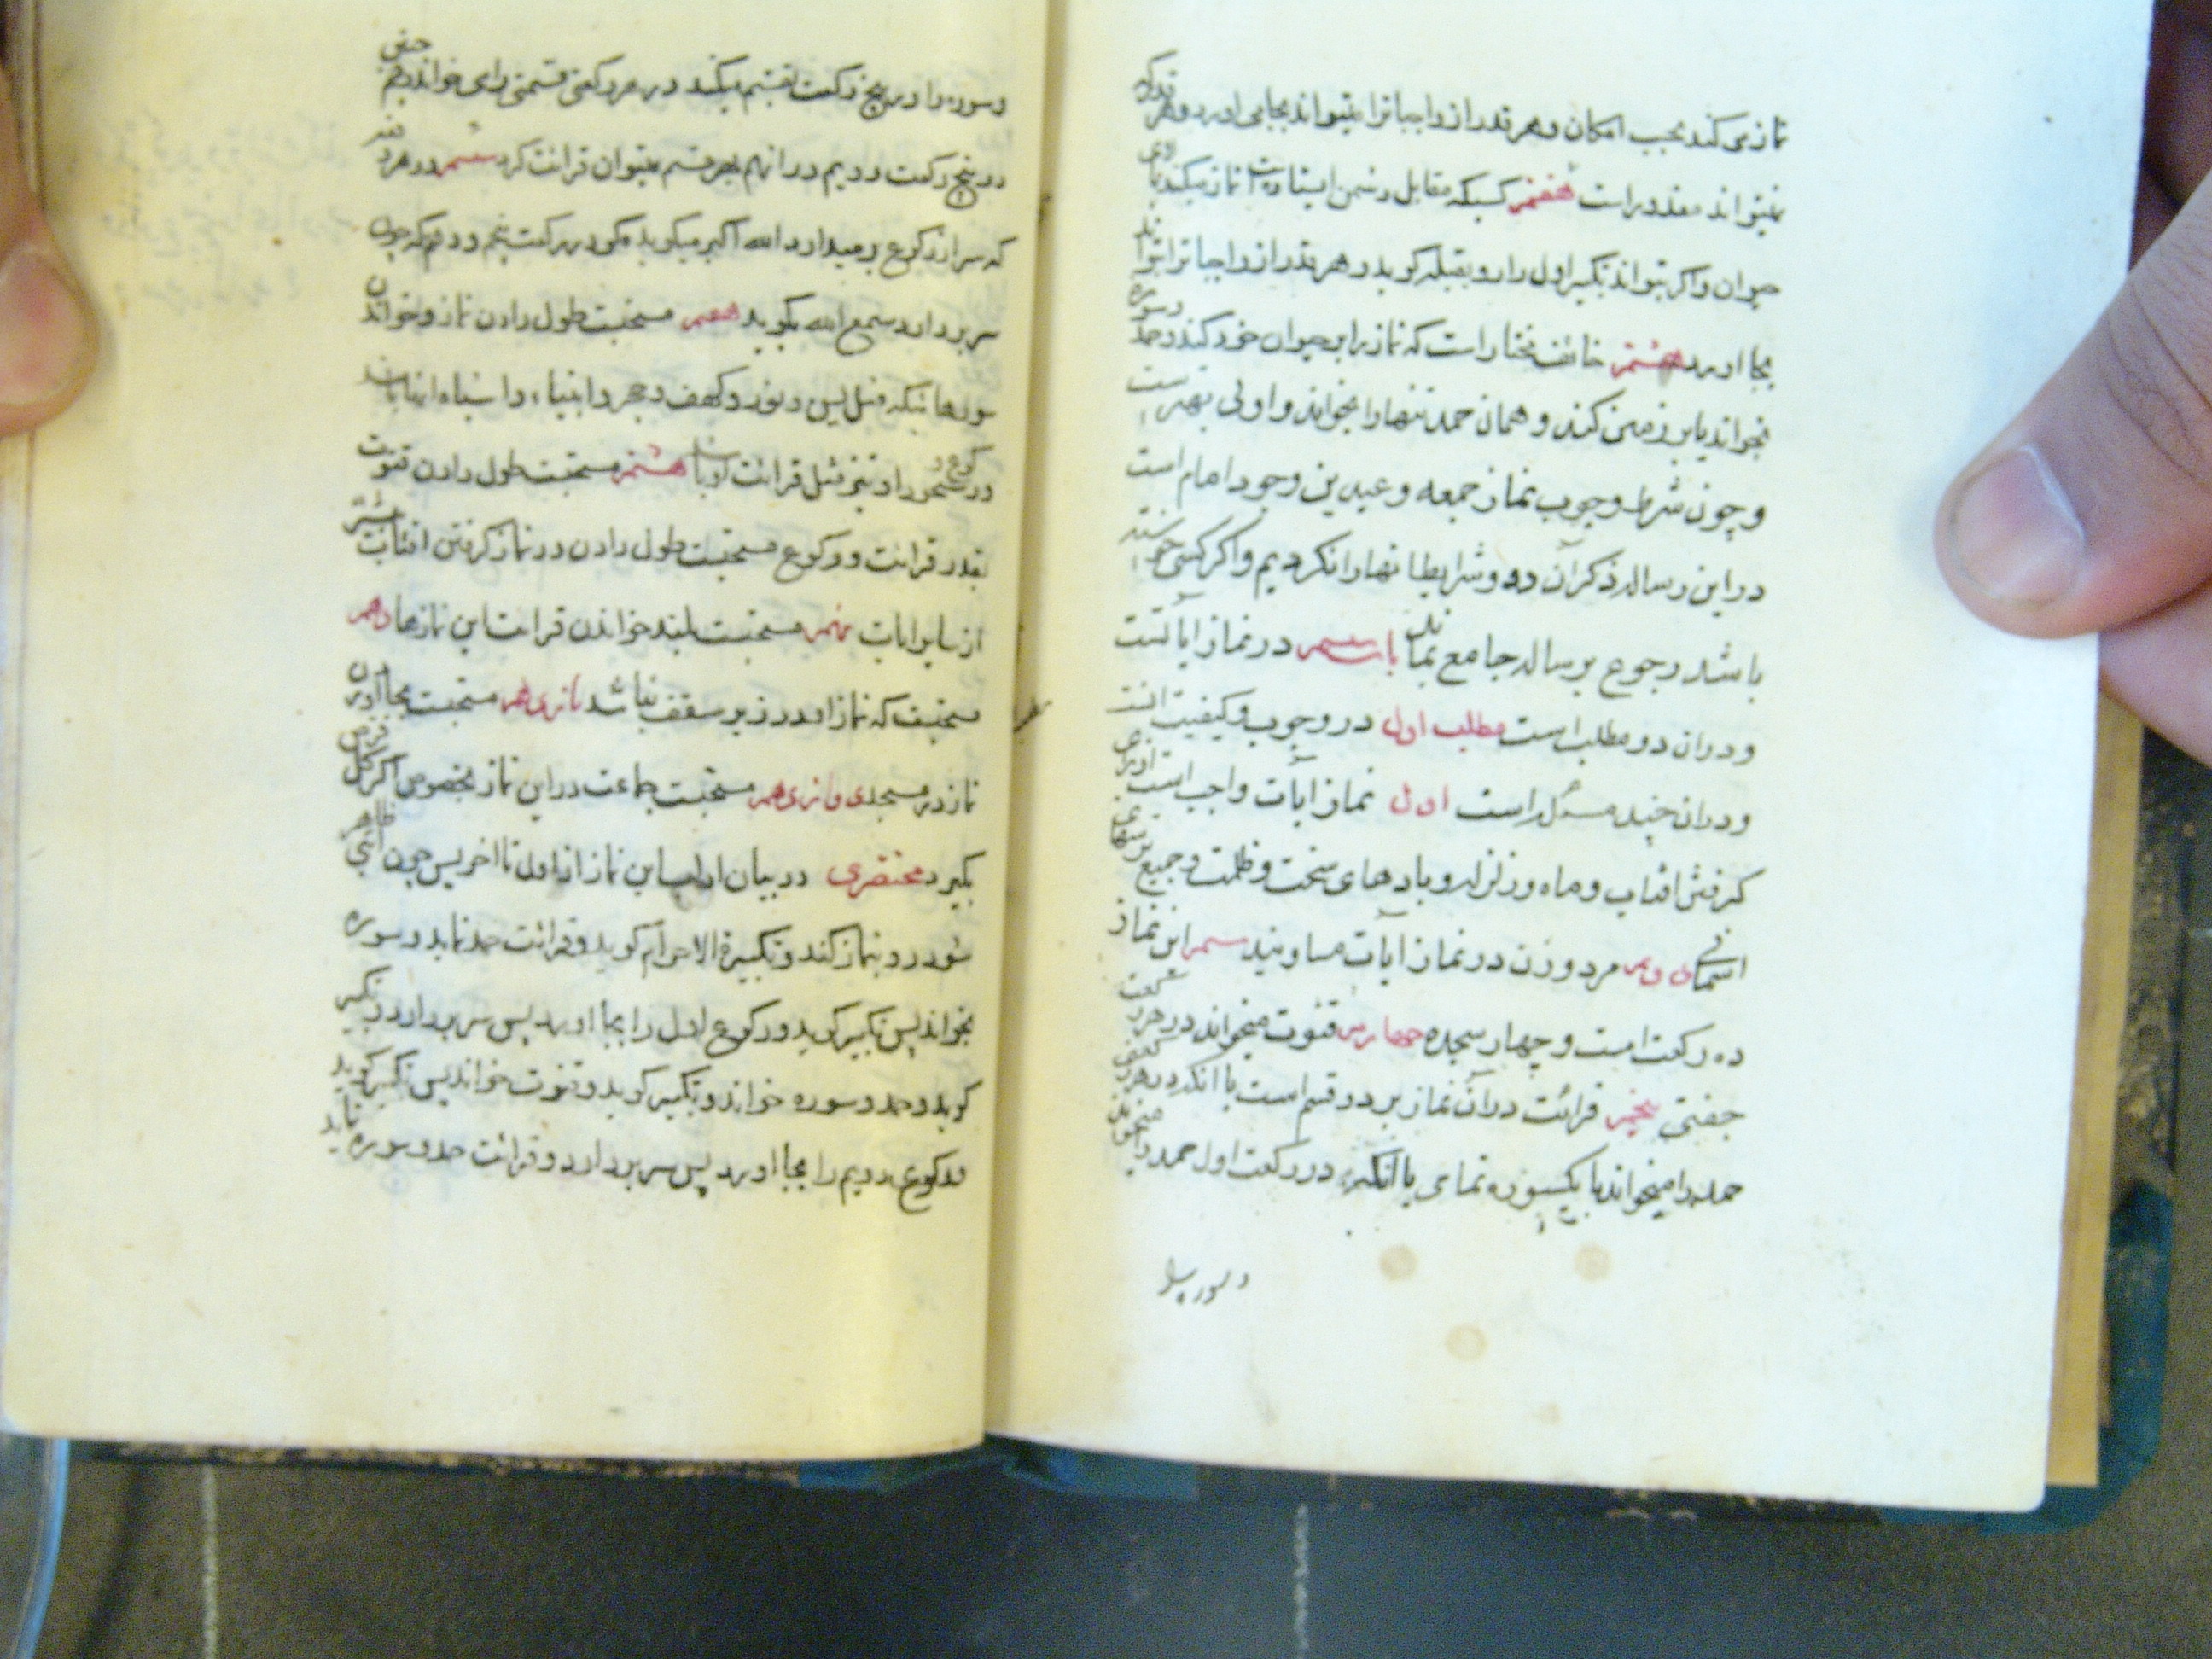 نماز می کند بحسب امکان و هر قدر از واجباترا بتیواند بجا می اورد و هر قدر که
نمیتواند معذور است هفتم کسیکه مقابل دشمن ایستاده است نماز میکند با روی
حیوان و اگر بتواند تکبیر اول را رو بقبله گوید و هر قدر از واجباترا تواند
بجا اورد هشتم خائف مختار است که نماز را بر حیوان خود کند و حمد و سوره
بخواند یا بر زمین کند و همان حمد تنها را بخواند و اولی بهتر است
و چون شرط وجوب نماز جمعه و عیدین وجود امام است
در این رساله ذکر آن دو و شرایط انها را نکردیم و اگر کسی خواسته
باشد رجوع بر ساله جامع نماید باب سیم در نماز آیاتست
و دران دو مطلب است مطلب اول در وجوب و کیفیت انست
و دران چند مسئله است اول نماز آیات واجب است از برای
گرفتن افتاب و ماه و زلزله و بادهای سخت و ظلمت و جمیع ترسهای
اسمانی دویم مرد و زن در نماز آیات مساویند سیم این نماز
ده رکعت است و چهار سجده چهارم قنوت میخواند در هر رکعت
جفتی پنجم قرائت در آن نماز بر دو قسم است یا انکه در هر رکعتی
حمد را میخواند با یکسوره تمامی یا انکه در رکعت اول حمد را میخواند
و سوره را
و سوره را در پنج رکعت تقسیم میکند در هر رکعتی قسمتی را می خواند همچنین
در پنج رکعت دویم در انهم بهر قسم میتوان قرائت کرد ششم در هر دفعه
که سر از رکوع بر میدارد الله اکبر میگوید مگر در رکعت پنجم و دهم که چون
سر بردارد سمع الله بگوید هفتم مستحبست طول دادن نماز و خواندن
سورهائیکه مثل یس و نور و کهف و حجر و انبیاء و اشباه اینها باشد
و رکوع و سجود را و نیز مثل قرائت هشتم مستحبست طول دادن قنوت
بقدر قرائت و رکوع مستحبست طول دادن در نماز گرفتن افتاب بیشتر
از سایر ایات نهم مستحبست بلند خواندن قرائت این نمازها دهم
مستحبست که نماز او در زیر سقف نباشد یازدهم مستحبست بجا اوردن
نماز در مسجد دوازدهم مستحبست جماعت در این نماز بخصوص اگر کل قرص
بگیرد مختصری در بیان اداب این نماز از اول تا اخر پس چون ایتی ظاهر
شود رو بنماز کند و تکبیرة الاحرام گوید و قرائت حمد نماید و سوره
بخواند پس تکبیر گوید و رکوع اول را بجا اورد پس سر بردارد و تکبیر
گوید و حمد و سوره خواند و تکبیر گوید و قنوت خواند پس تکبیر گوید
و رکوع دویم را بجا اورد پس سر بردارد و قرائت حمد و سوره نماید